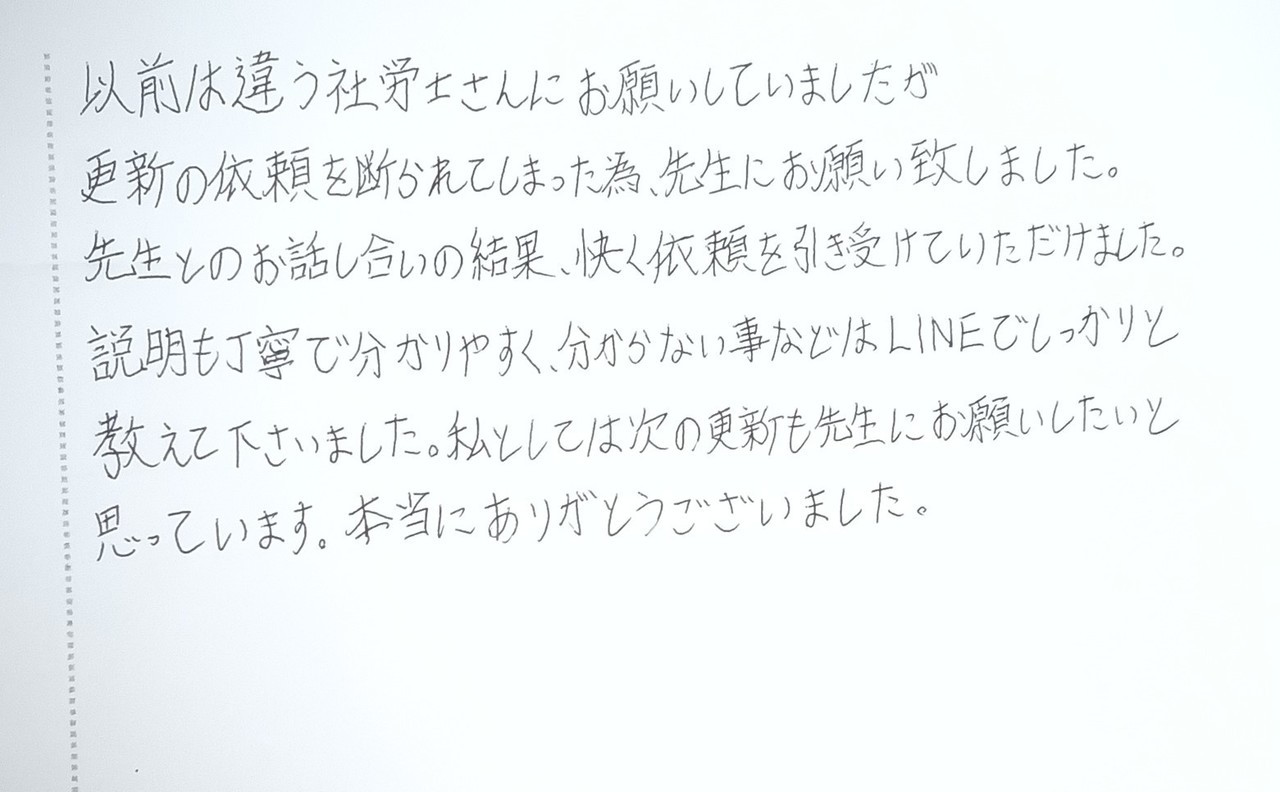 以前は違う社労士さんにお願いしていましたが
更新の依頼を断られてしまった為、先生にお願い致しました。
先生とのお話し合いの結果、快く依頼を引き受けていただけました。
説明も丁寧で分かりやすく、分からない事などはLINEでしっかりと
教えて下さいました。私としては次の更新も先生にお願いしたいと
思っています。本当にありがとうございました。